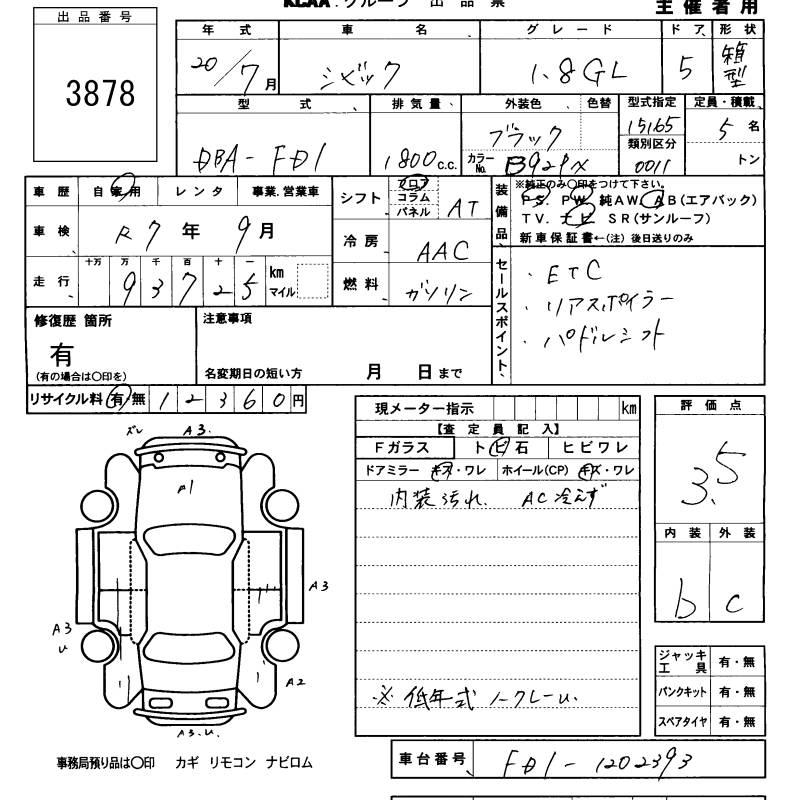 KCAA グループ 出品票
主催者用
出品番号
3878
年式 車名 グレード ドア 形状
20/7月 シビック 1.8GL 5 箱型
型式 排気量 外装色 色替 型式指定 定員・積載
DBA-FD1 1800c.c. ブラック 15165 5名
カラーNo. B92PX 類別区分 0011 トン
車歴 自家用 レンタ 事業.営業車
車検 R7年9月
走行 十万 万 千 百 十 一
93725 km マイル
シフト フロア コラム パネル AT
冷房 AAC
燃料 ガソリン
装備品 ※純正のみ○印をつけて下さい。
PS. PW 純AW. AB(エアバック)
TV. ナビ SR(サンルーフ)
新車保証書←(注)後日送りのみ
セールスポイント、
・ETC
・リアスポイラー
・パドルシフト
修復歴 箇所
有
(有の場合は○印を)
注意事項
名変期日の短い方 月 日まで
リサイクル料 有 無 12360円
現メーター指示 km
【査定員記入】
Fガラス トビ石 ヒビワレ
ドアミラー キズ・ワレ ホイール(CP) キズ・ワレ
内装汚れ. AC冷えず
※ 低年式 ノークレーム.
評価点
3.5
内装 外装
b c
ジャッキ工具 有・無
パンクキット 有・無
スペアタイヤ 有・無
ズレ A3.
A1
A3
A3
U
A2
A3.U.
事務局預り品は○印 カギ リモコン ナビロム
車台番号 FD1-1202393